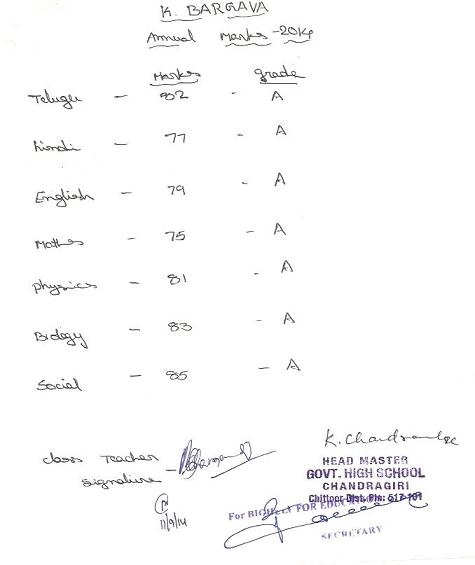 K. BARGAVA
Annual Marks - 2014
Marks grade
Telugu - 82 - A
hindi - 77 - A
English - 79 - A
Mathes - 75 - A
physics - 81 - A
Biology - 83 - A
Social - 85 - A
class Teacher
signature -
11/9/14
K. Chandra
HEAD MASTER
GOVT. HIGH SCHOOL
CHANDRAGIRI
Chittoor Dist. Pin: 517 101
For FOR
SECRETARY